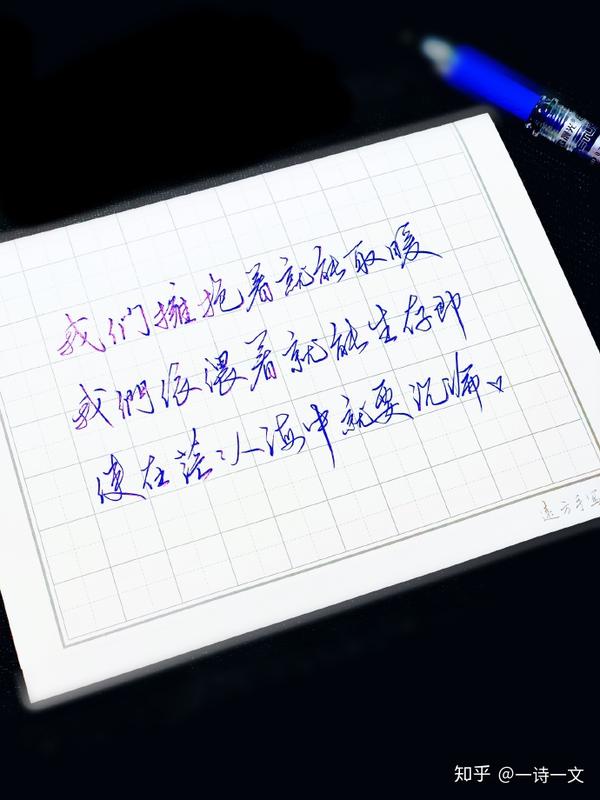 我們擁抱着就能取暖
我們依偎着就能生存即
使在茫々人海中就要沉淪。
远方手写
知乎 @一诗一文